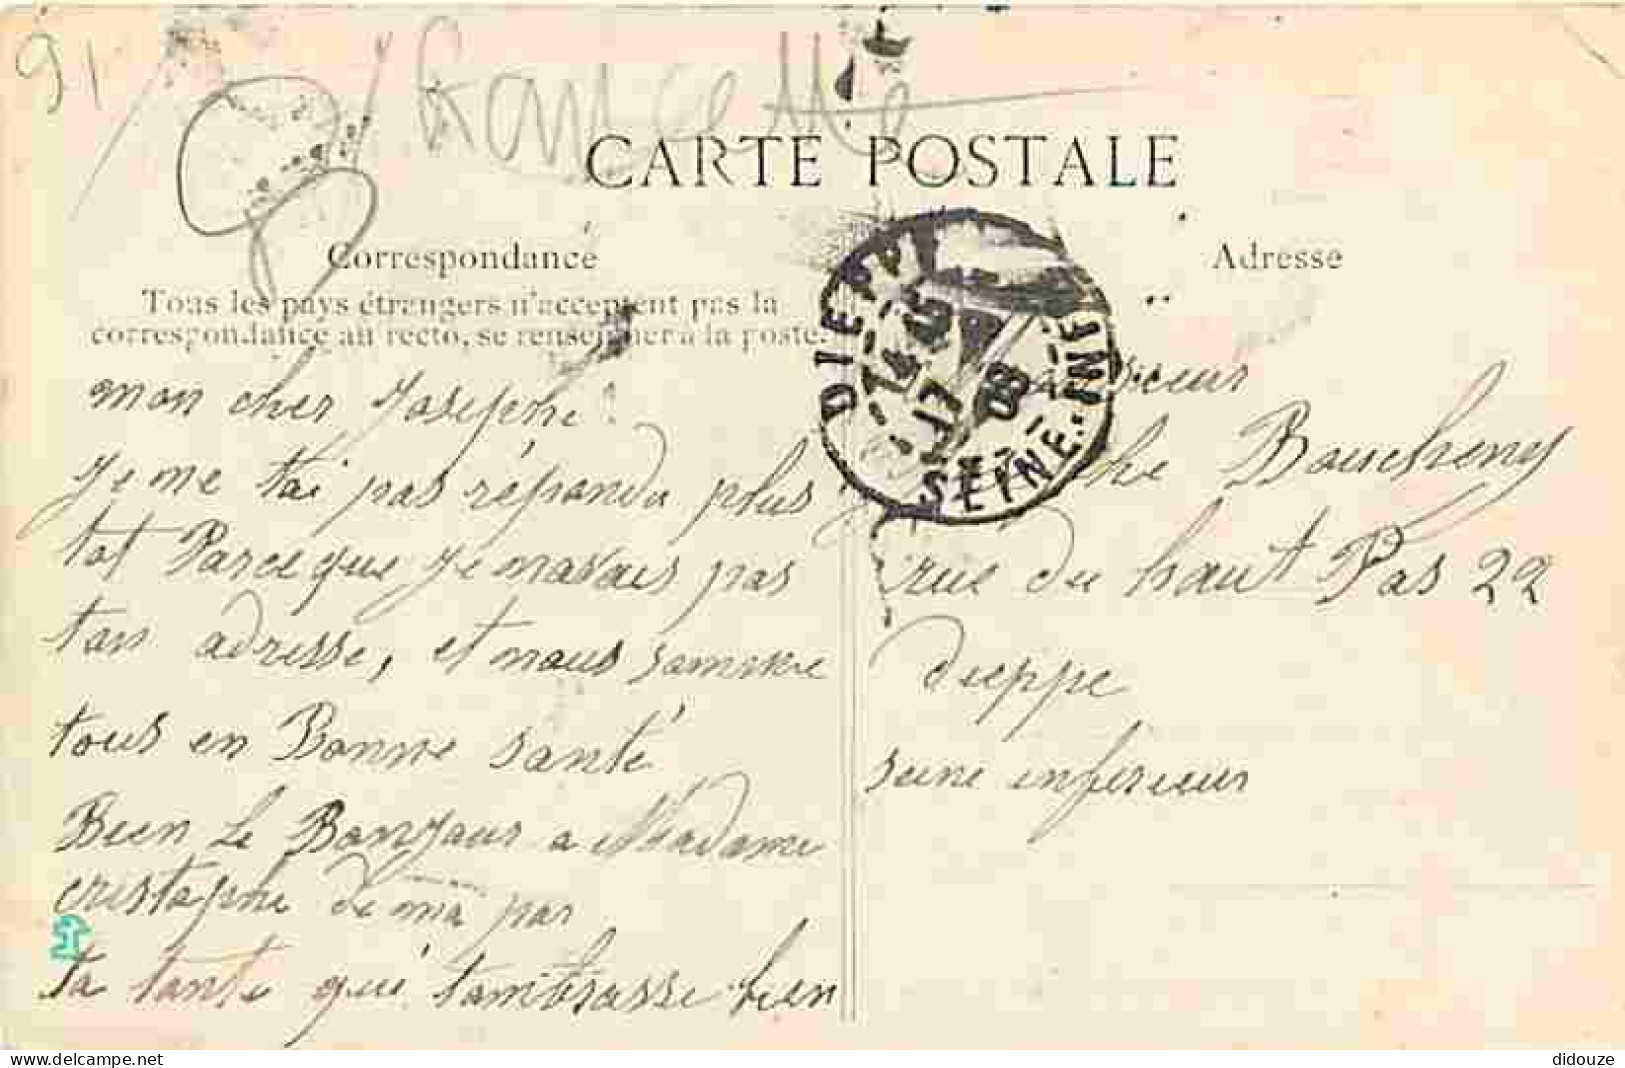 91
CARTE POSTALE
Correspondance
Adresse
Tous les pays étrangers n'acceptent pas la
correspondance au recto, se renseigner à la poste.
DIEPPE
SEINE-INFRE
08
mon cher Josephe !
Je me tai pas réponda plus
tot Parceque Je navais pas
ton adresse, et nous somme
tous en Bonne santé
Bien Le Bonjour a Madame
cristophe de ma par
ta tante qui t'ambrasse bien
rue du haut Pas 22
dieppe
seine inferieur
delcampe.net
didouze